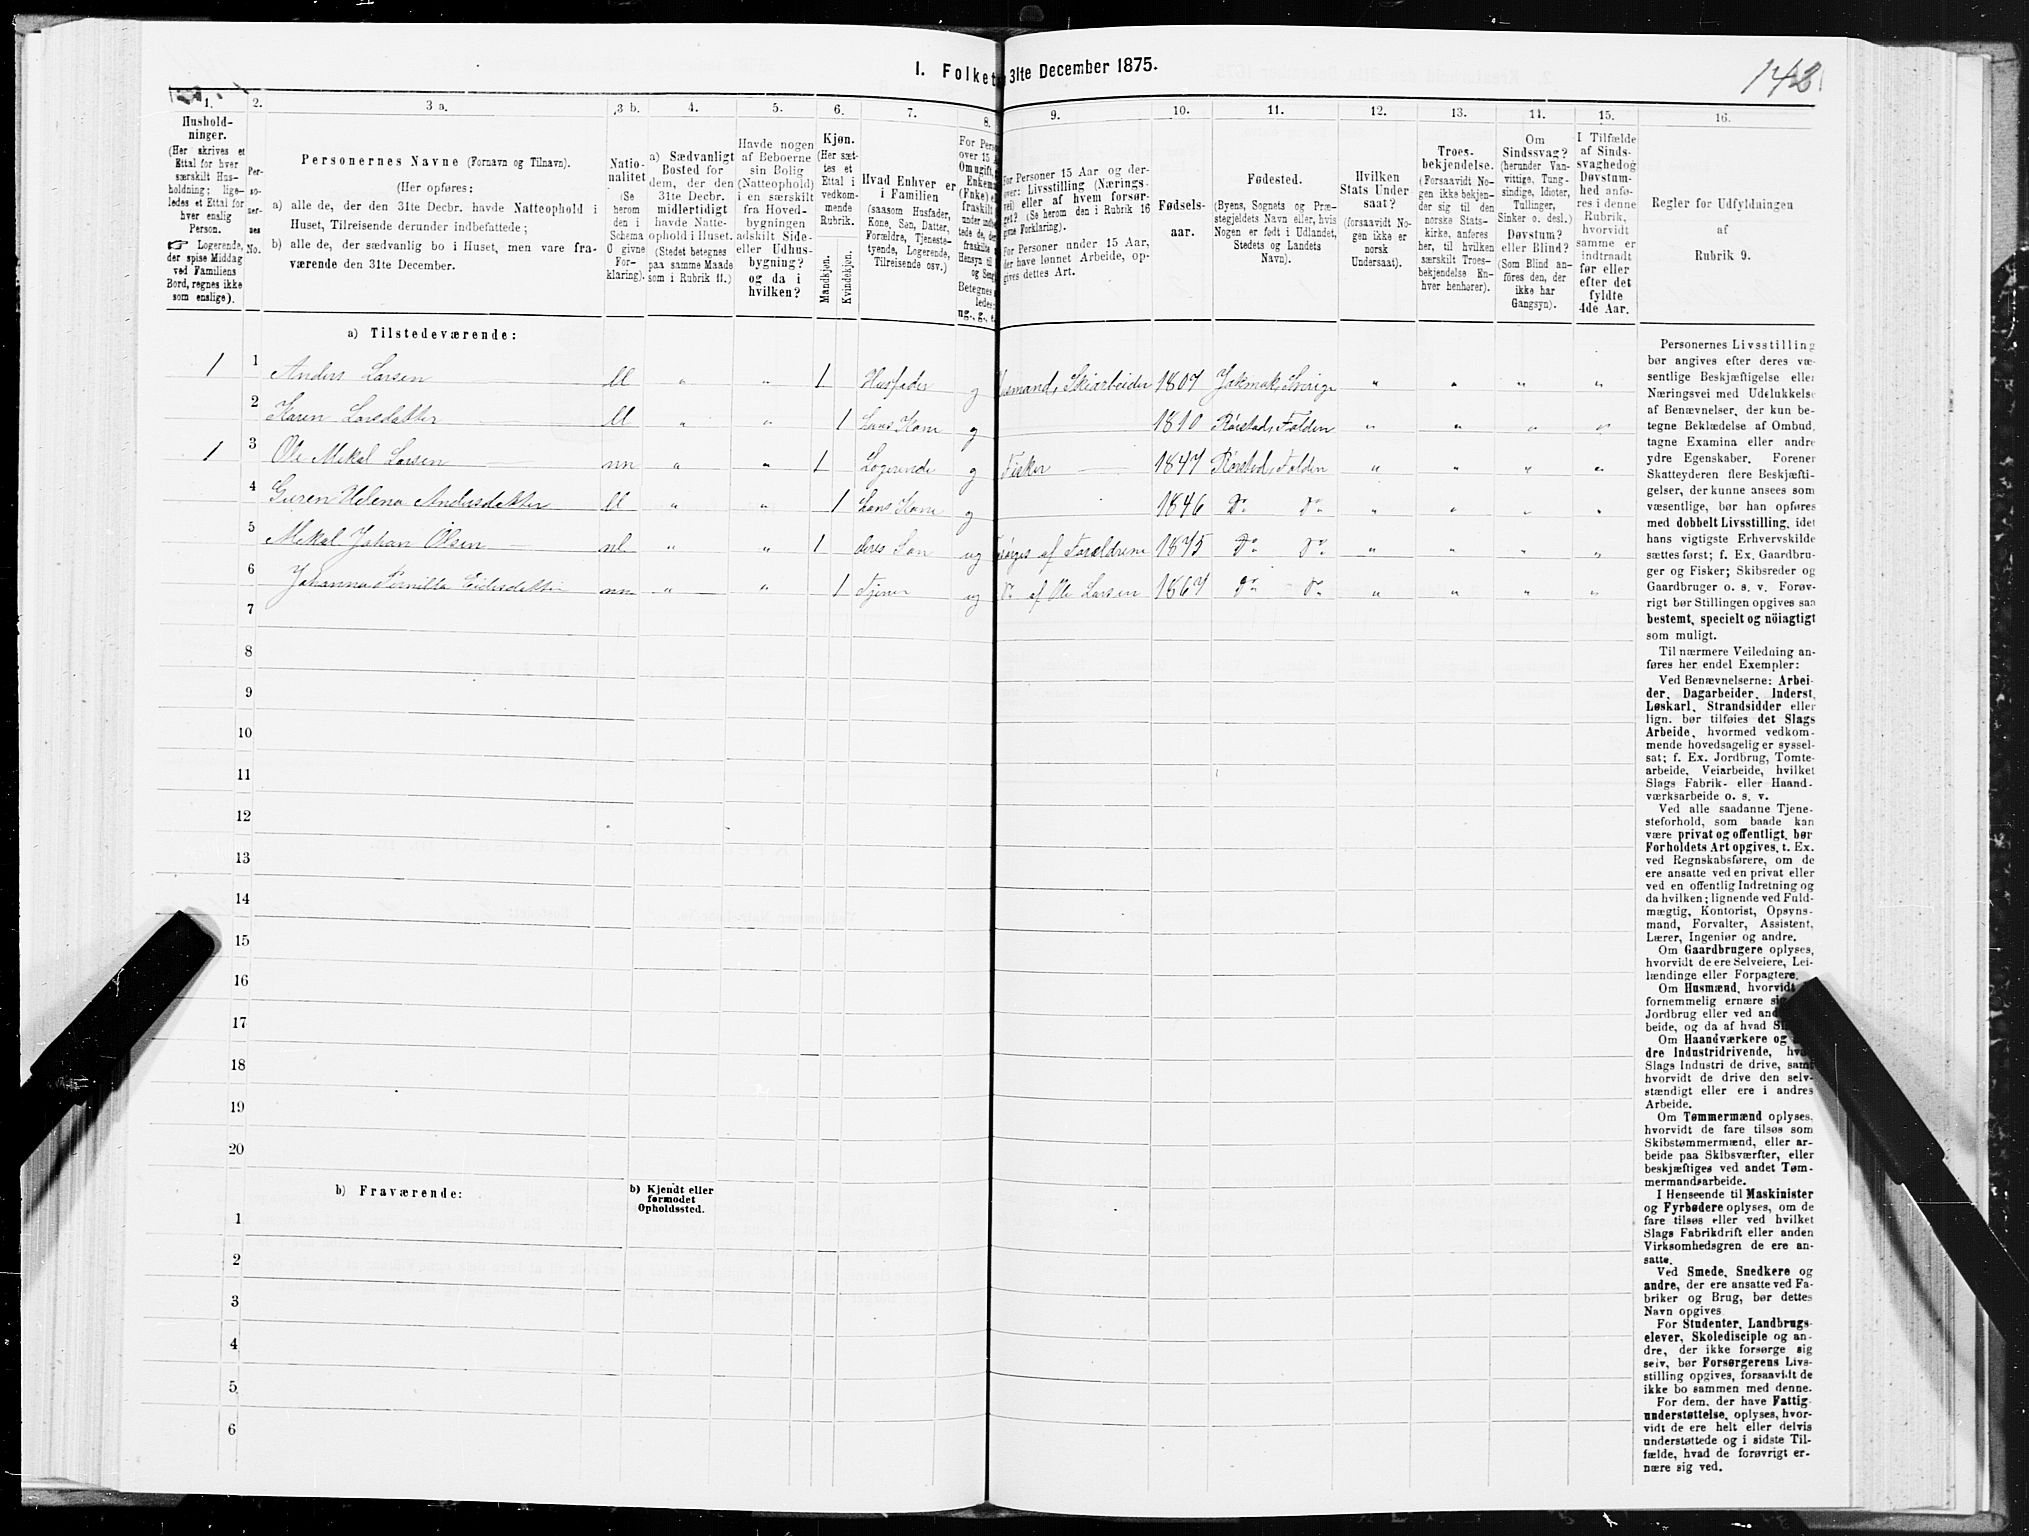 I. Folket 31te December 1875.
142
1. 2. 3 a. 3 b. 4. 5. 6. 7. 8. 9. 10. 11. 12. 13. 14. 15. 16.
Hushold-
ninger.
(Her skrives et
Ettal for hver
særskilt Hus-
holdning; lige-
ledes et Ettal for
hver enslig
Person.
☞ Logerende,
der spise Middag
ved Familiens
Bord, regnes ikke
som enslige).
Per-
so-
ner-
nes
No.
Personernes Navne (Fornavn og Tilnavn).
(Her opføres:
a) alle de, der den 31te Decbr. havde Natteophold i
Huset, Tilreisende derunder indbefattede;
b) alle de, der sædvanlig bo i Huset, men vare fra-
værende den 31te December.
Natio-
nalitet
(Se
herom
den i
Schema
O givne
For-
klaring).
a) Sædvanligt
Bosted for
dem, der den
31te Decbr.
midlertidigt
havde Natte-
ophold i Huset.
(Stedet betegnes
paa samme Maade
som i Rubrik 11.)
Havde nogen
af Beboerne
sin Bolig
(Natteophold)
i en særskilt
fra Hoved-
bygningen
adskilt Side-
eller Udhus-
bygning?
og da i
hvilken?
Kjøn.
(Her sæt-
tes et
Ettal i
vedkom-
mende
Rubrik.
Mandkjøn.
Kvindekjøn.
Hvad Enhver er
i Familien
(saasom Husfader,
Kone, Søn, Datter,
Forældre, Tjeneste-
tyende, Logerende,
Tilreisende osv.)
For Pers
over 15 A
Om ugift,
Enkem
(Enke) e
fraskilt
under indbe
tede de, de
fraskilte
Hensyn til
og Seng
Betegnes
ledes:
ug., g., e.
For Personer 15 Aar og der-
over: Livsstilling (Nærings-
vei) eller af hvem forsør-
get? (Se herom den i Rubrik 16
givne Forklaring).
For Personer under 15 Aar,
der have lønnet Arbeide, op-
gives dettes Art.
Fødsels-
aar.
Fødested.
(Byens, Sognets og Præ-
stegjeldets Navn eller, hvis
Nogen er født i Udlandet,
Stedets og Landets
Navn).
Hvilken
Stats Under-
saat?
(forsaavidt No-
gen ikke er
norsk
Undersaat).
Troes-
bekjendelse.
(Forsaavidt No-
gen ikke bekjen-
der sig til den
norske Stats-
kirke, anføres
her, til hvilken
særskilt Troes-
bekjendelse En-
hver henhører).
Om
Sindssvag?
(herunder Van-
vittige, Tung-
sindige, Idioter,
Tullinger,
Sinker o. desl.)
Døvstum?
eller Blind?
(Som Blind an-
føres den, der
ikke har
Gangsyn).
I Tilfælde
af Sinds-
svaghed og
Døvstum-
hed anfø-
res i denne
Rubrik,
hvorvidt
samme er
indtraadt
før eller
efter det
fyldte
4de Aar.
Regler for Udfyldningen
af
Rubrik 9.
a) Tilstedeværende:
1 1 Anders Larsen ll „ „ 1 Husfader g smand, Skiarbeider 1807 Jokmok, Sverige „ „ „ „
2 Karen Larsdatter ll „ „ 1 Hans Kone g 1810 Rørstad, Folden „ „ „ „
1 3 Ole Mekal Larsen nn „ „ 1 Logerende g Fisker 1847 Rørstad, Folden „ „ „ „
4 Guren Helena Andersdatter ll „ „ 1 Hans Kone g 1846 Do Do „ „ „ „
5 Mekal Johan Olsen nl „ „ 1 deres Søn ug sørges af Forældrene 1875 Do Do „ „ „ „
6 Johanna Pernilla Eidisdatter nn „ „ 1 Tjener ug Do af Ole Larsen 1867 Do Do „ „ „ „
7
8
9
10
11
12
13
14
15
16
17
18
19
20
b) Fraværende:
b) Kjendt eller
formodet
Opholdssted.
1
2
3
4
5
6
Personernes Livsstilling
bør angives efter deres væ-
sentlige Beskjæftigelse eller
Næringsvei med Udelukkelse
af Benævnelser, der kun be-
tegne Beklædelse af Ombud,
tagne Examina eller andre
ydre Egenskaber. Forener
Skatteyderen flere Beskjæfti-
gelser, der kunne ansees som
væsentlige, bør han opføres
med dobbelt Livsstilling, idet
hans vigtigste Erhvervskilde
sættes først; f. Ex. Gaardbru-
ger og Fisker; Skibsreder og
Gaardbruger o. s. v. Forøv-
rigt bør Stillingen opgives saa
bestemt, specielt og nöiagtigt
som muligt.
Til nærmere Veiledning an-
føres her endel Exempler:
Ved Benævnelserne: Arbei-
der, Dagarbeider, Inderst,
Løskarl, Strandsidder eller
lign. bør tilføies det Slags
Arbeide, hvormed vedkom-
mende hovedsagelig er syssel-
sat; f. Ex. Jordbrug, Tomte-
arbeide, Veiarbeide, hvilket
Slags Fabrik- eller Haand-
værksarbeide o. s. v.
Ved alle saadanne Tjene-
steforhold, som baade kan
være privat og offentligt, bør
Forholdets Art opgives, t. Ex.
ved Regnskabsførere, om de
ere ansatte ved en privat eller
ved en offentlig Indretning og
da hvilken; lignende ved Fuld-
mægtig, Kontorist, Opsyns-
mand, Forvalter, Assistent,
Lærer, Ingeniør og andre.
Om Gaardbrugere oplyses,
hvorvidt de ere Selveiere, Lei-
lændinge eller Forpagtere.
Om Husmænd, hvorvidt
fornemmelig ernære si
Jordbrug eller ved and
beide, og da af hvad S
Om Haandværkere og
dre Industridrivende, hv
Slags Industri de drive, samt
hvorvidt de drive den selv-
stændigt eller ere i andres
Arbeide.
Om Tømmermænd oplyses,
hvorvidt de fare tilsøs som
Skibstømmermænd, eller ar-
beide paa Skibsværfter, eller
beskjæftiges ved andet Tøm-
mermandsarbeide.
I Henseende til Maskinister
og Fyrbødere oplyses, om de
fare tilsøs eller ved hvilket
Slags Fabrikdrift eller anden
Virksomhedsgren de ere an-
satte.
Ved Smede, Snedkere og
andre, der ere ansatte ved Fa-
briker og Brug, bør dettes
Navn opgives
For Studenter, Landbrugs-
elever, Skoledisciple og an-
dre, der ikke forsørge sig
selv, bør Forsørgerens Livs-
stilling opgives, forsaavidt de
ikke bo sammen med denne.
For dem, der have Fattig-
understøttelse, oplyses, hvor-
vidt de ere helt eller delvis
understøttede og i sidste Til-
fælde, hvad de forøvrigt er-
nære sig ved.